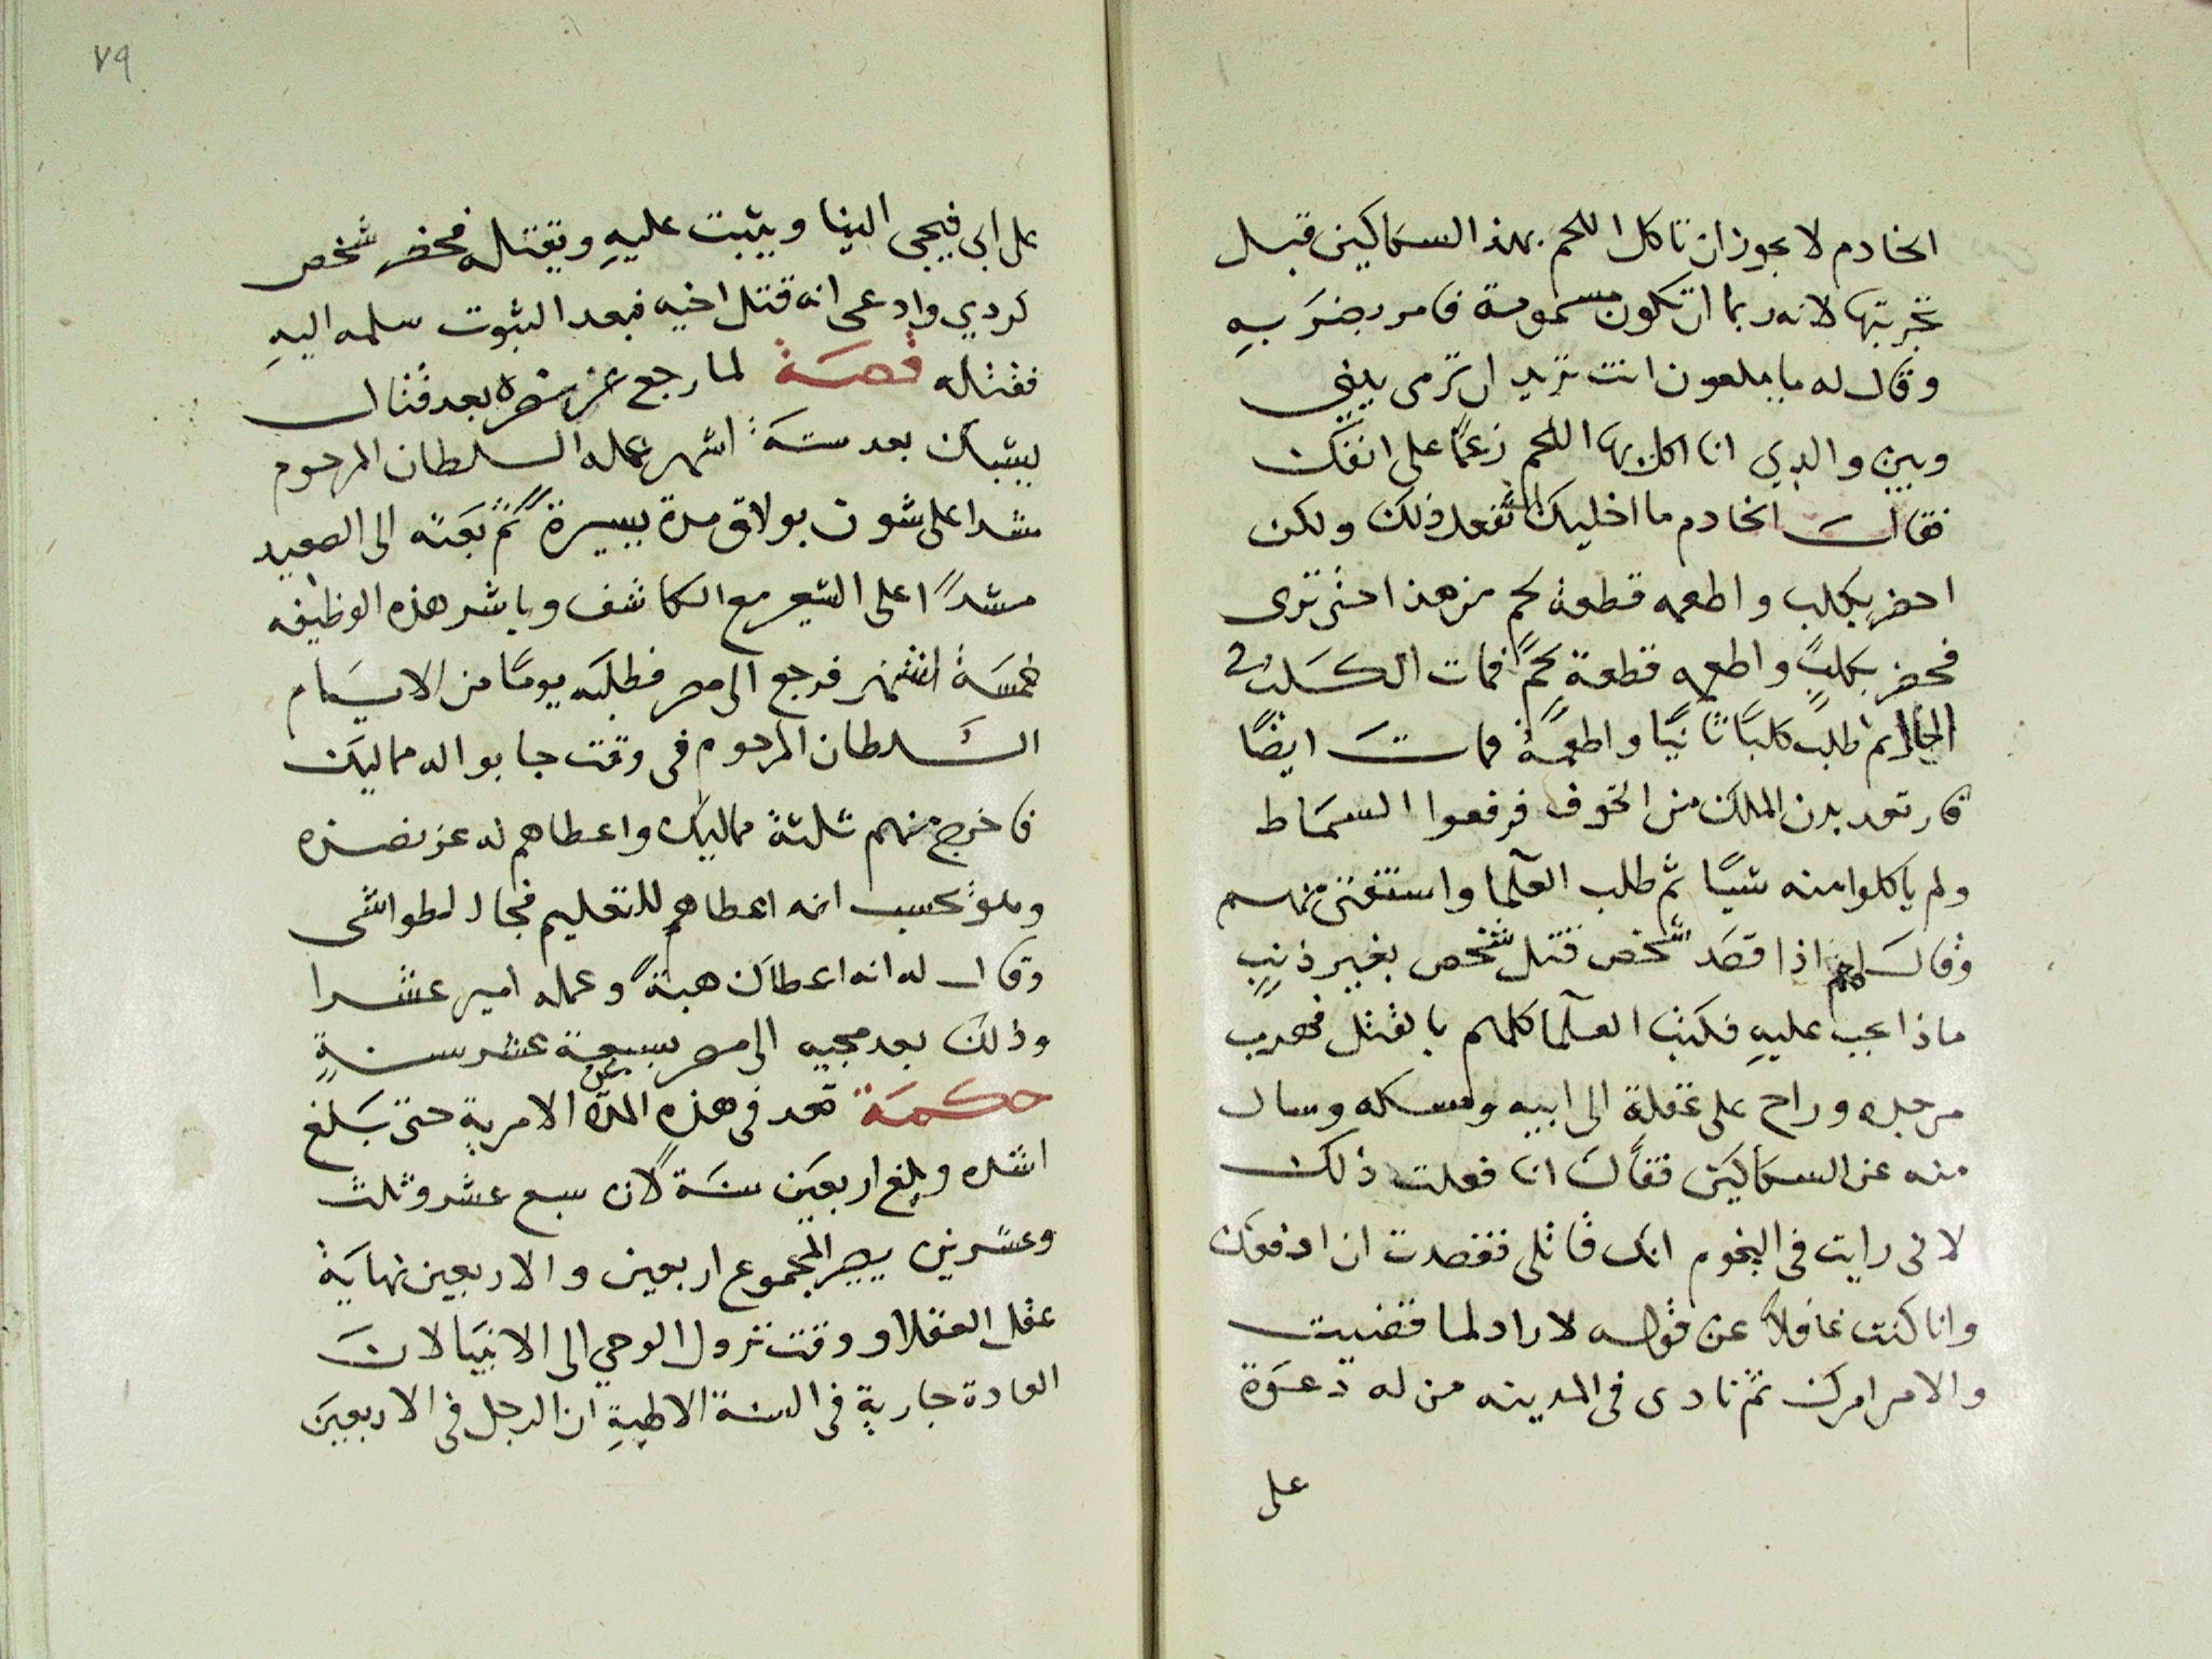 الخادم لا يجوز ان تاكل اللحم بهذا السكاكين قبل
تجربتها لانه ربما ان تكون مسمومة فامر بضربه
وقال له يا ملعون انت تريد ان ترمى بينى
وبين والدي انا اكل بها اللحم زعمًا على انفك
فقال الخادم ما اخليك تفعل ذلك ولكن
احضر بكلب واطعمه قطعة لحم من هذا حتى ترى
فحضر بكلبٍ واطعمه قطعة لحمٍ فمات الكلب فى
الحال ثم طلب كلبًا ثانيًا واطعمه فمات ايضًا
فارتعد بدن الملك من الخوف فرفعوا السماط
ولم ياكلوا منه شيًا ثم طلب العلما واستفتى منهم
وقال لهم اذا قصد شخص قتل شخص بغير ذنبٍ
ماذا يجب عليهِ فكتب العلما كلهم بالقتل فهرب
من جله وراح على غفلة الى ابيه ومسكه وسال
منه عن السكاكين فقال انا فعلت ذلك
لانى رايت فى النجوم انك قاتلى فقصدت ان ادفعك
وانا كنت غافلاً عن قوله لا راد لما قضيت
والامر امرك ثم نادى فى المدينه من له دعوة
على
٧٩
على ابى فيجى الينا ويثبت عليهِ ويقتله فحضر شخص
كردي وادعى انه قتل اخيه فبعد الثبوت سلمه اليهِ
فقتله قصة لما رجع عز نصره بعد قتال
يشبك بعد ستة اشهر عمله السلطان المرحوم
مشدا على شون بولاق مدة يسيرة ثم بعثه الى الصعيد
مشدًا على الشعير مع الكاشف وباشر هذه الوظيفه
خمسة اشهر فرجع الى مصر فطلبه يومًا من الايام
السلطان المرحوم فى وقت جابوا له مماليك
فاخرج منهم ثلثة مماليك واعطاهم له عز نصره
وهو يحسب انه اعطاهم للتعليم فجا الطواشى
وقال له انه اعطاك هبةً وعمله امير عشرا
وذلك بعد مجيه الى مصر بسبعة عشر سنةٍ
حكمة قعد فى هذه المدة عن الامرية حتى بلغ
اشده وبلغ اربعين سنة لان سبع عشر وثلث
وعشرين يصير المجموع اربعين والاربعين نهاية
عقل العقلا ووقت نزول الوحي الى الانبيا لان
العادة جارية فى السنة الالهيةِ ان الرجل فى الاربعين